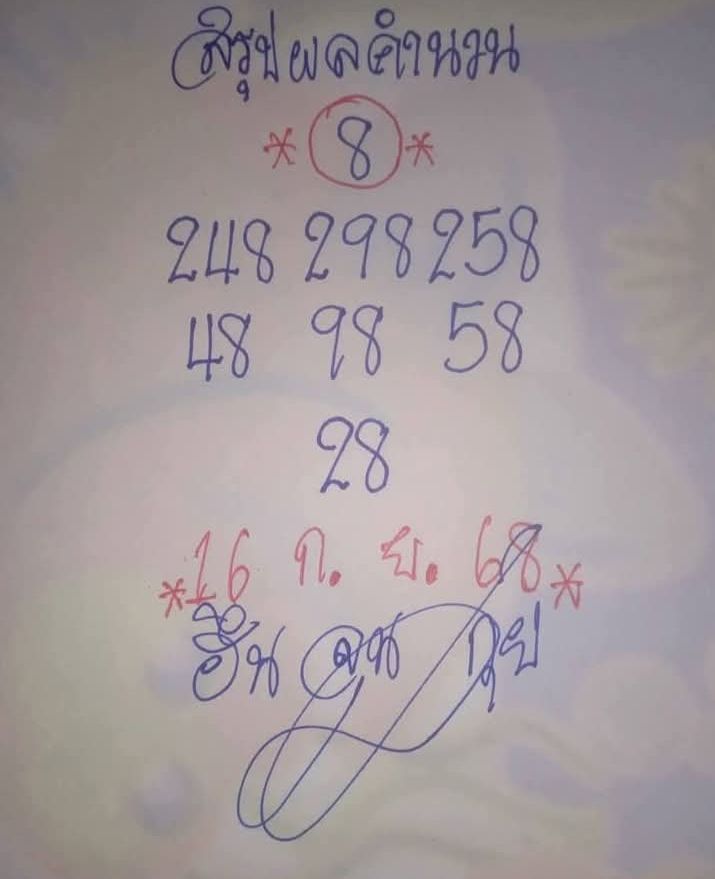 สรุปผลคำนวน
* 8 *
248 298 258
48 98 58
28
*16 ก. ย. 68*
ฮั้น